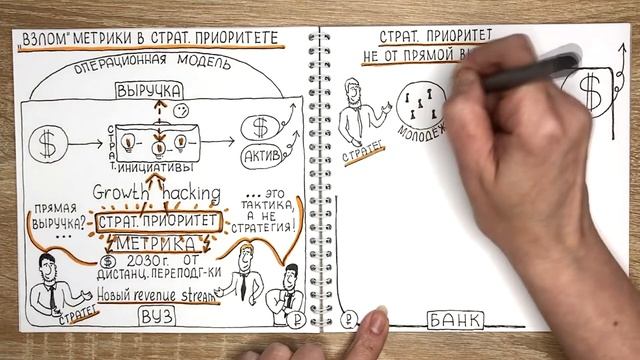 "ВЗЛОМ" МЕТРИКИ В СТРАТ. ПРИОРИТЕТЕ
ОПЕРАЦИОННАЯ МОДЕЛЬ
ВЫРУЧКА
$
СТРАТ.
ИНИЦИАТИВЫ
$
АКТИВ
Growth hacking
ПРЯМАЯ
ВЫРУЧКА?
...
СТРАТ. ПРИОРИТЕТ
МЕТРИКА
... ЭТО
ТАКТИКА,
А НЕ
СТРАТЕГИЯ!
$ 2030 г. ОТ
ДИСТАНЦ. ПЕРЕПОДГ-КИ
Новый revenue stream
СТРАТЕГ
ВУЗ
₽
СТРАТ. ПРИОРИТЕТ
НЕ ОТ ПРЯМОЙ
СТРАТЕГ
МОЛОДЕЖ
$
₽
БАНК